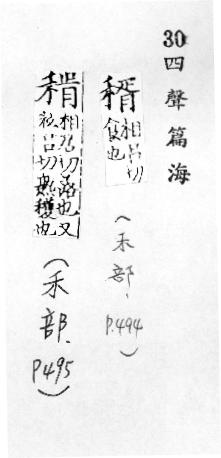 30四聲篇海
稰
相呂切
食也
（禾部、P.494）
相呂切落也又
呂切熟穫也
（禾部、P495）